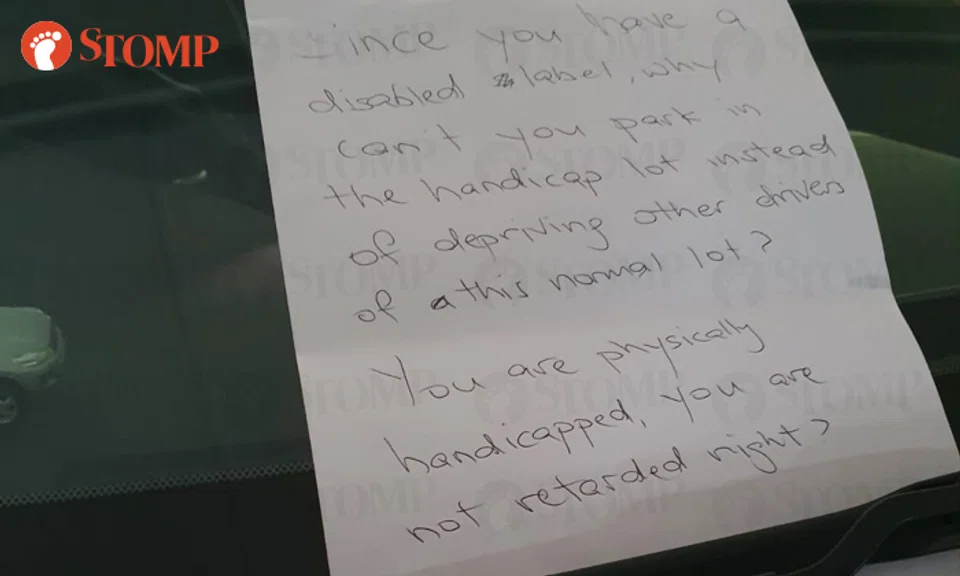 STOMP
Since you have a
disabled label, why
can't you park in
the handicap lot instead
of depriving other drivers
of this normal lot?
You are physically
handicapped, you are
not retarded right?